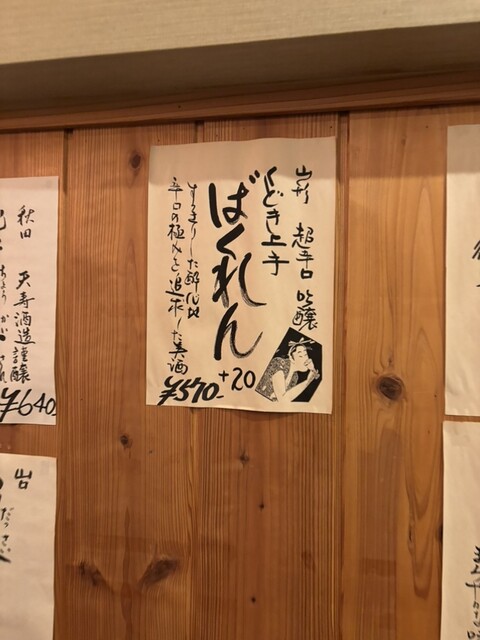 山形 超辛口 吟醸
くどき上手
ばくれん
+20
すっきりした酔心地
辛口の極みを追求した美酒
¥570-
秋田 天寿酒造謹醸
¥640
山口
だっさい